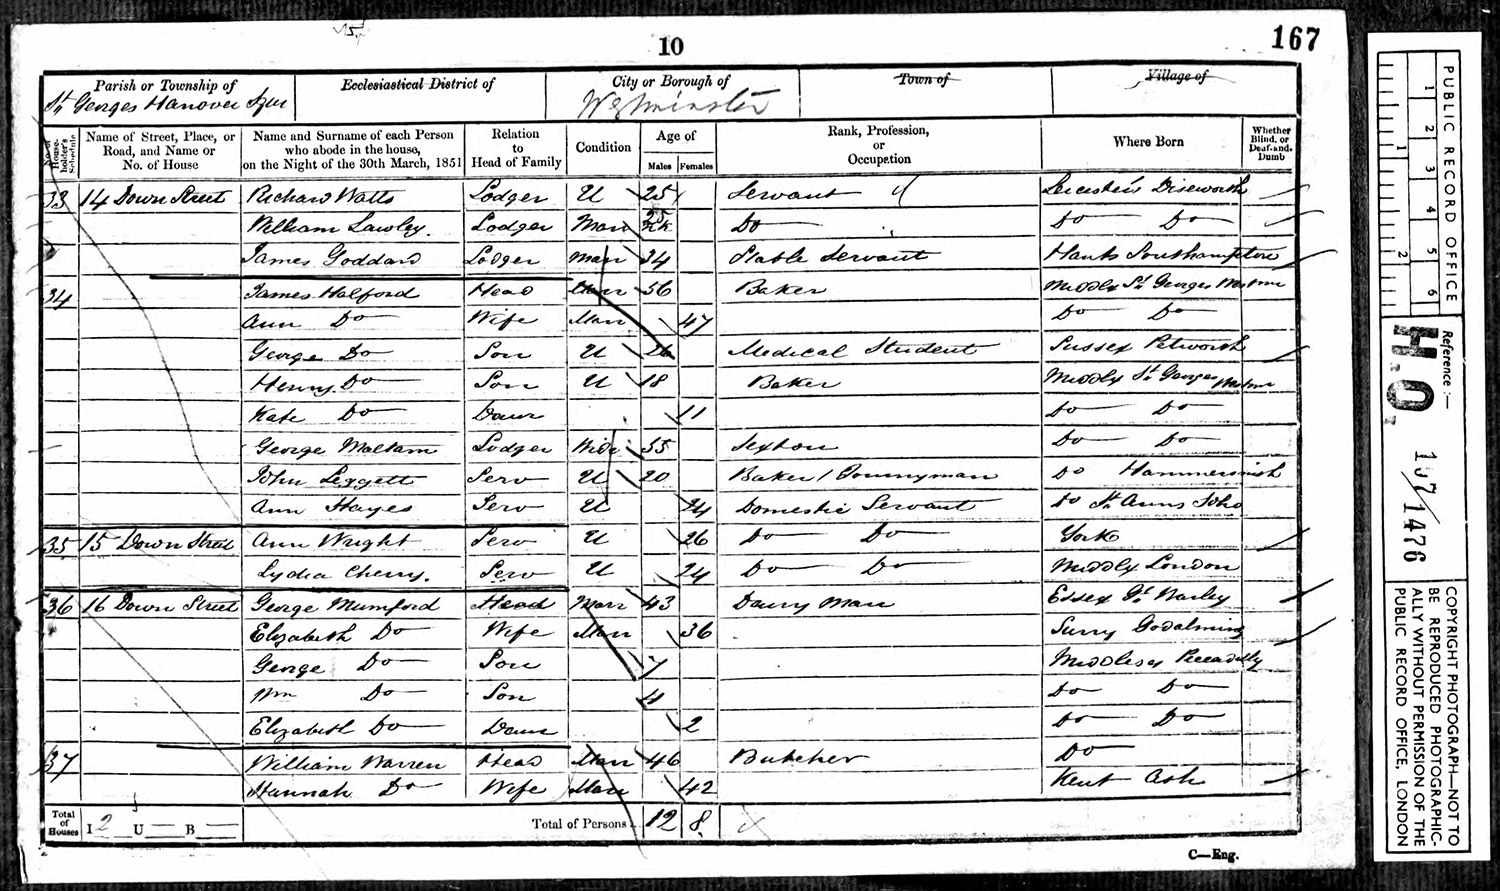 10
167
Parish or Township of
St Georges Hanover Sqre
Ecclesiastical District of
City or Borough of
Westminster
Town of
Village of
No. of House-holder's Schedule
Name of Street, Place, or Road, and Name or No. of House
Name and Surname of each Person who abode in the house, on the Night of the 30th March, 1851
Relation to Head of Family
Condition
Age of
Males Females
Rank, Profession, or Occupation
Where Born
Whether Blind, or Deaf-and-Dumb
33 14 Down Street Richard Watts Lodger U 25 Servant Leicester Diseworth
William Lawley Lodger Marr 25 Do Do Do
James Goddard Lodger Marr 34 Stable Servant Hants Southampton
34 James Halford Head Marr 56 Baker Middx St Georges
Ann Do Wife Marr 47 Do Do
George Do Son U 26 Medical Student Sussex Petworth
Henry Do Son U 18 Baker Middx St Georges
Kate Do Daur 11 Do Do
George Maltam Lodger Widr 55 Sexton Do Do
John Leggett Serv U 20 Baker / Journyman Do Hammersmith
Ann Hayes Serv U 24 Domestic Servant Do St Anns Soho
35 15 Down Street Ann Wright Serv U 26 Do Do York
Lydia Cherry. Serv U 24 Do Do Middx London
36 16 Down Street George Mumford Head Marr 43 Dairy Man Essex Gt Warley
Elizabeth Do Wife Marr 36 Surry Godalming
George Do Son 7 Middlesex Piccadilly
Wm Do Son 4 Do Do
Elizabeth Do Daur 2 Do Do
37 William Warren Head Marr 46 Butcher Do
Hannah Do Wife Marr 42 Kent Ash
Total of Houses I 2 U — B — Total of Persons 12 8
C—Eng.
PUBLIC RECORD OFFICE
1 2 3 4 5 6
1 2
Reference:—
H.O. 107/1476
COPYRIGHT PHOTOGRAPH—NOT TO
BE REPRODUCED PHOTOGRAPHIC-
ALLY WITHOUT PERMISSION OF THE
PUBLIC RECORD OFFICE, LONDON